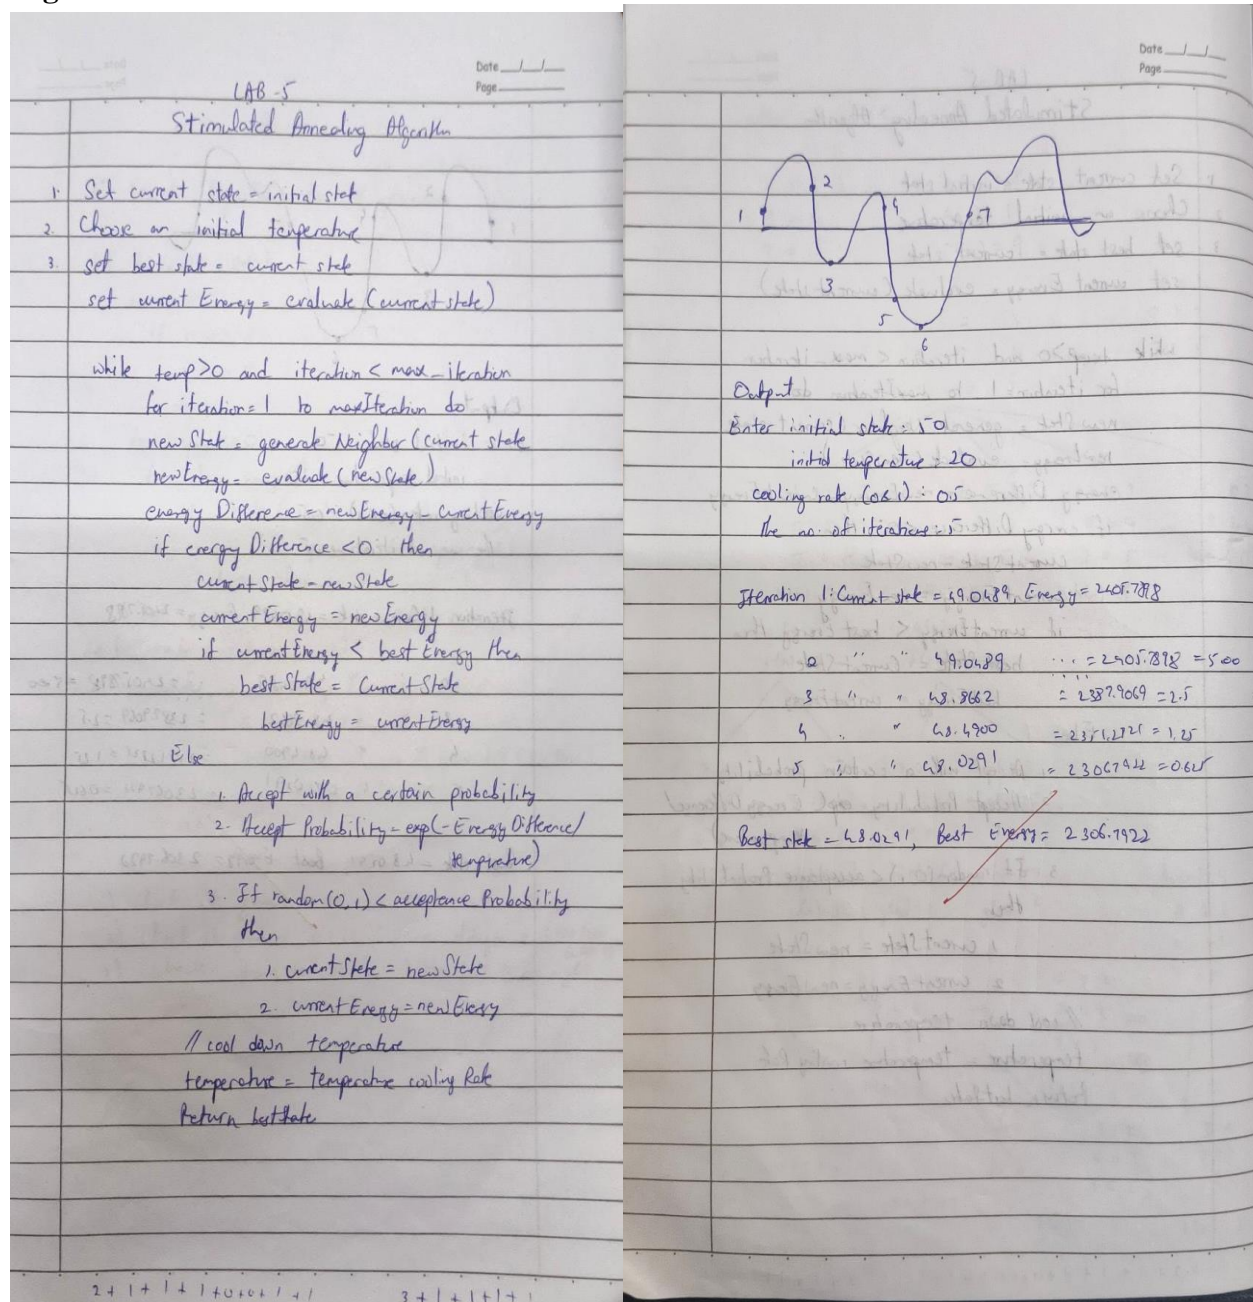 Date __/__/__
Page
LAB-5
Stimulated Annealing Algorithm
1. Set current state = initial state
2. Choose an initial temperature
3. set best state = current state
set current Energy = evaluate (current state)
while temp>0 and iteration < max_iteration
for iteration=1 to maxIteration do
newState = generate Neighbur (current state
newEnergy = evaluate (newState)
energy Difference = newEnergy - currentEnergy
if energy Difference <0 then
currentState = newState
currentEnergy = newEnergy
if currentEnergy < best Energy then
bestState = CurrentState
bestEnergy = currentEnergy
Else
1. Accept with a certain probability
2. Accept Probability = exp(-Energy Difference/
temperature)
3. If random(0,1) < acceptance Probability
then
1. currentState = newState
2. currentEnergy = newEnergy
// cool down temperature
temperature = temperature cooling Rate
Return beststate
2+1+1+1+0+0+1+1
3+1+1+1+1
Date __/__/__
Page
1
2
3
4
5
6
7
Output
Enter initial state: 50
initial temperature: 20
cooling rate (0&1): 0.5
the no. of iterations: 5
Iteration 1: Current state = 49.0489, Energy = 2405.7898
2 " " 49.0489 ... = 2405.7898 = 5.00
3 " " 48.8662 = 2387.9069 = 2.5
4 " 48.4900 = 1.25
5 " " 48.0291 = 2306.7922 = 0.625
Best state = 48.0291, Best Energy = 2306.7922